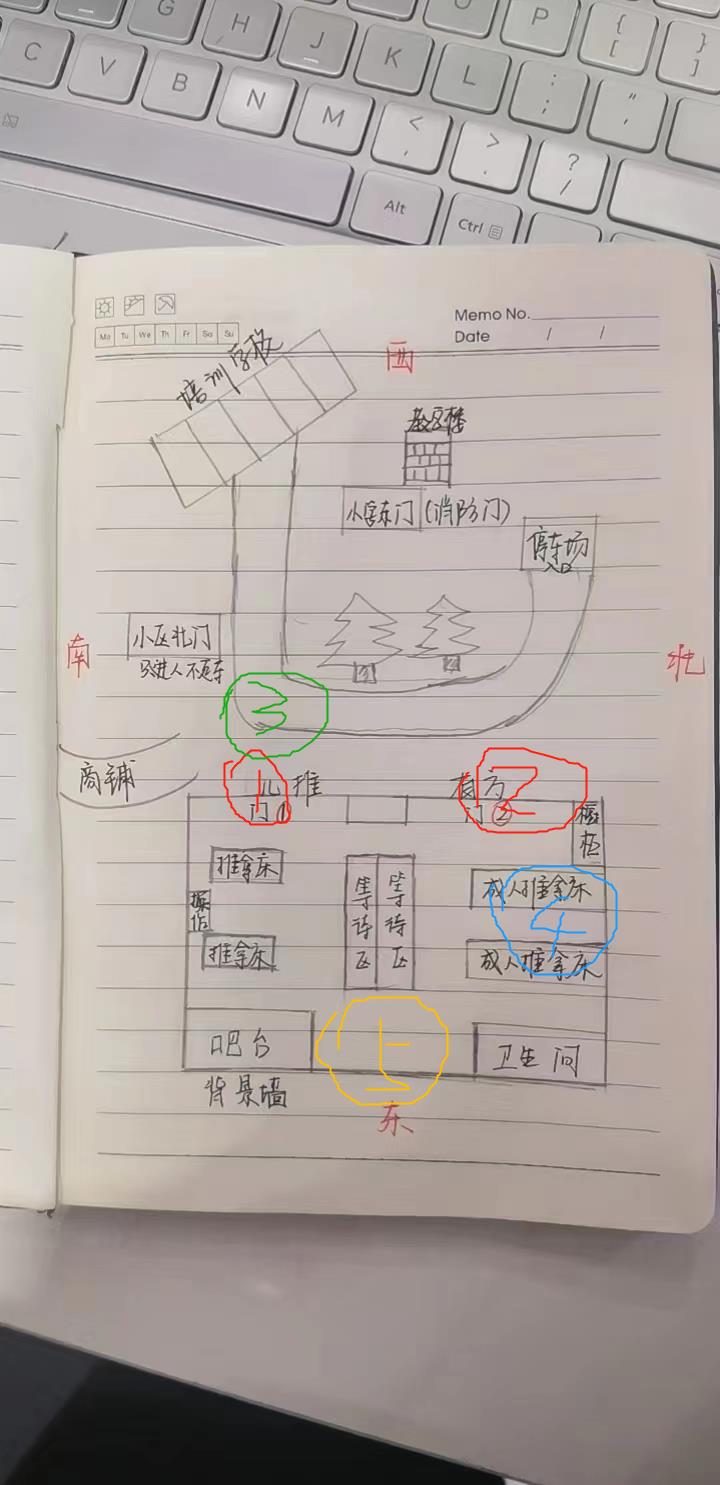 G
H
J
K
L
P
{
[
}
]
:
;
"
'
C
V
B
N
M
<
,
>
.
?
/
Alt
Ctrl
Memo No.
Date / /
Mo Tu We Th Fr Sa Su
西
培训学校
小区东门(消防门)
停车场
入口
小区北门
只进人不走车
南
北
3
商铺
1
儿推
门①
2
门②
橱柜
推拿床
操作
推拿床
等待区
等待区
成人推拿床
4
成人推拿床
吧台
5
卫生间
背景墙
东